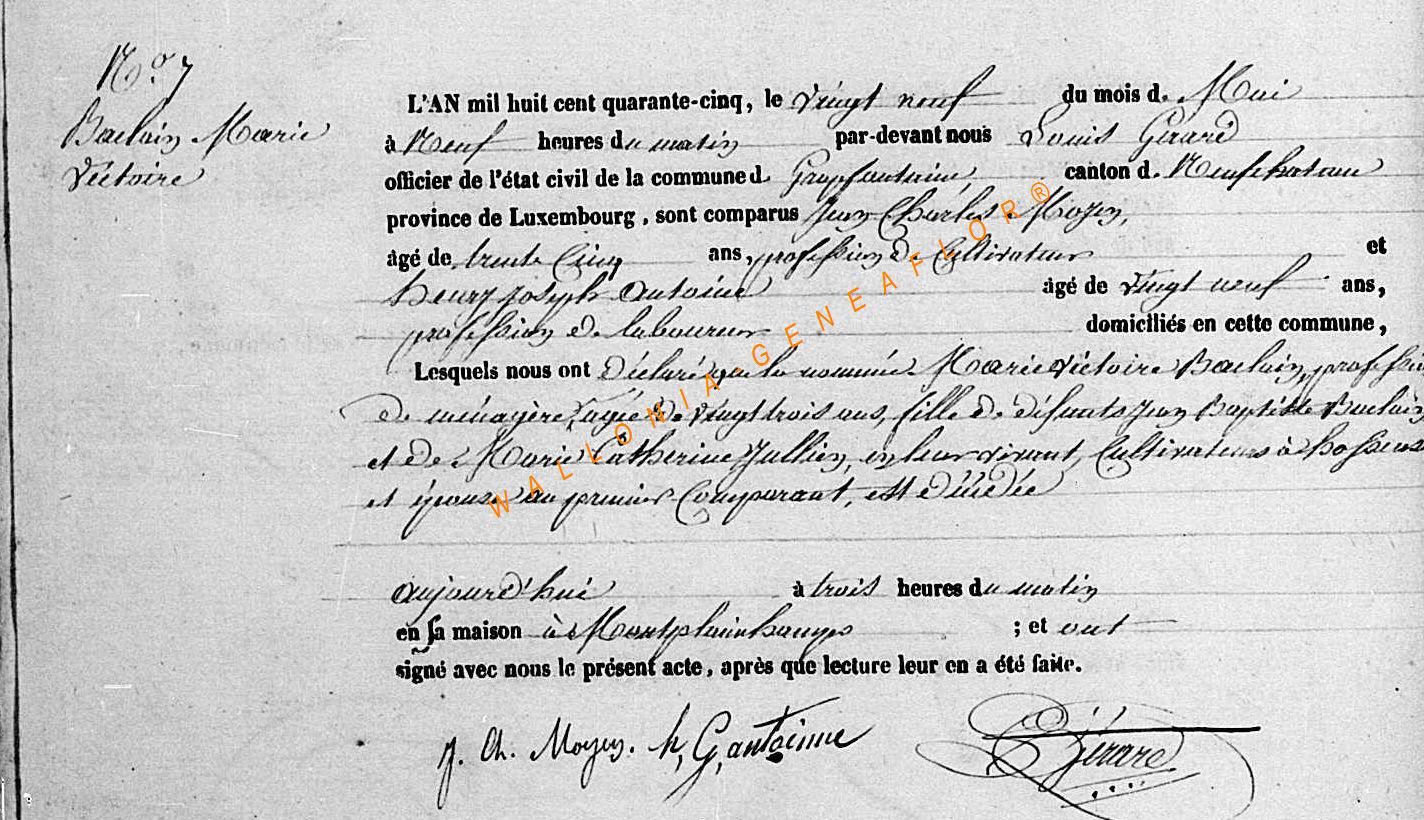 No. 7
Baclain Marie
Victoire
L'AN mil huit cent quarante-cinq, le vingt neuf du mois d. Mai
à Neuf heures du matin par-devant nous Louis Gérard
officier de l'état civil de la commune d. Grapfontaine canton d. Neufchateau
province de Luxembourg, sont comparus Jean Charles Moyen,
âgé de trente Cinq ans, profession de Cultivateur et
henry joseph antoine âgé de vingt neuf ans,
profession de laboureur domiciliés en cette commune,
Lesquels nous ont déclaré que la nommée Marie Victoire Baclain, profession
de ménagère, agée de vingt trois ans, fille de défunts Jean Baptiste Baclain
et de Marie Catherine Jullien, en leur vivant, Cultivateurs à hosseuse
et épouse au premier Comparant, est décédée
aujourd'hui à trois heures du matin
en sa maison à Montplainchamps ; et ont
signé avec nous le présent acte, après que lecture leur en a été faite.
J. Ch. Moyen. h, G, antoinne Gérard
WALLONIA-GENEAFLOR®